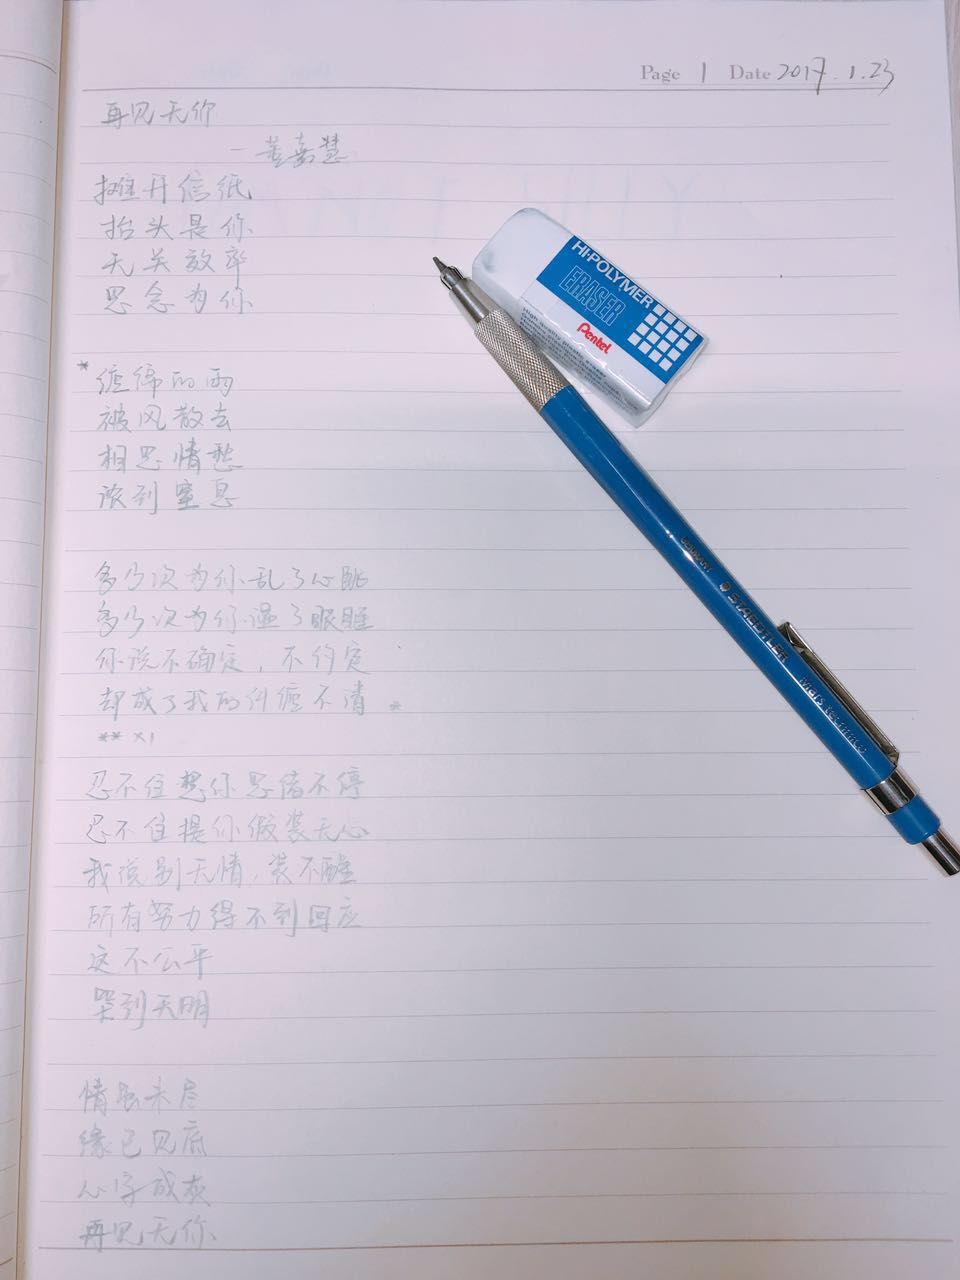 Page 1 Date 2017.1.23
再见无你
—董嘉慧
摊开信纸
抬头是你
无关效率
思念为你
*
缠绵的雨
被风散去
相思情愁
浓到窒息
多少次为你乱了心跳
多少次为你湿了眼睛
你说不确定，不约定
却成了我的纠缠不清 *
** ×1
忍不住想你思绪不停
忍不住提你假装无心
我说别无情，装不醒
所有努力得不到回应
这不公平
哭到天明
情虽未尽
缘已见底
心字成灰
再见无你
HI-POLYMER
ERASER
Pentel
GERMANY
STAEDTLER
Mars technico